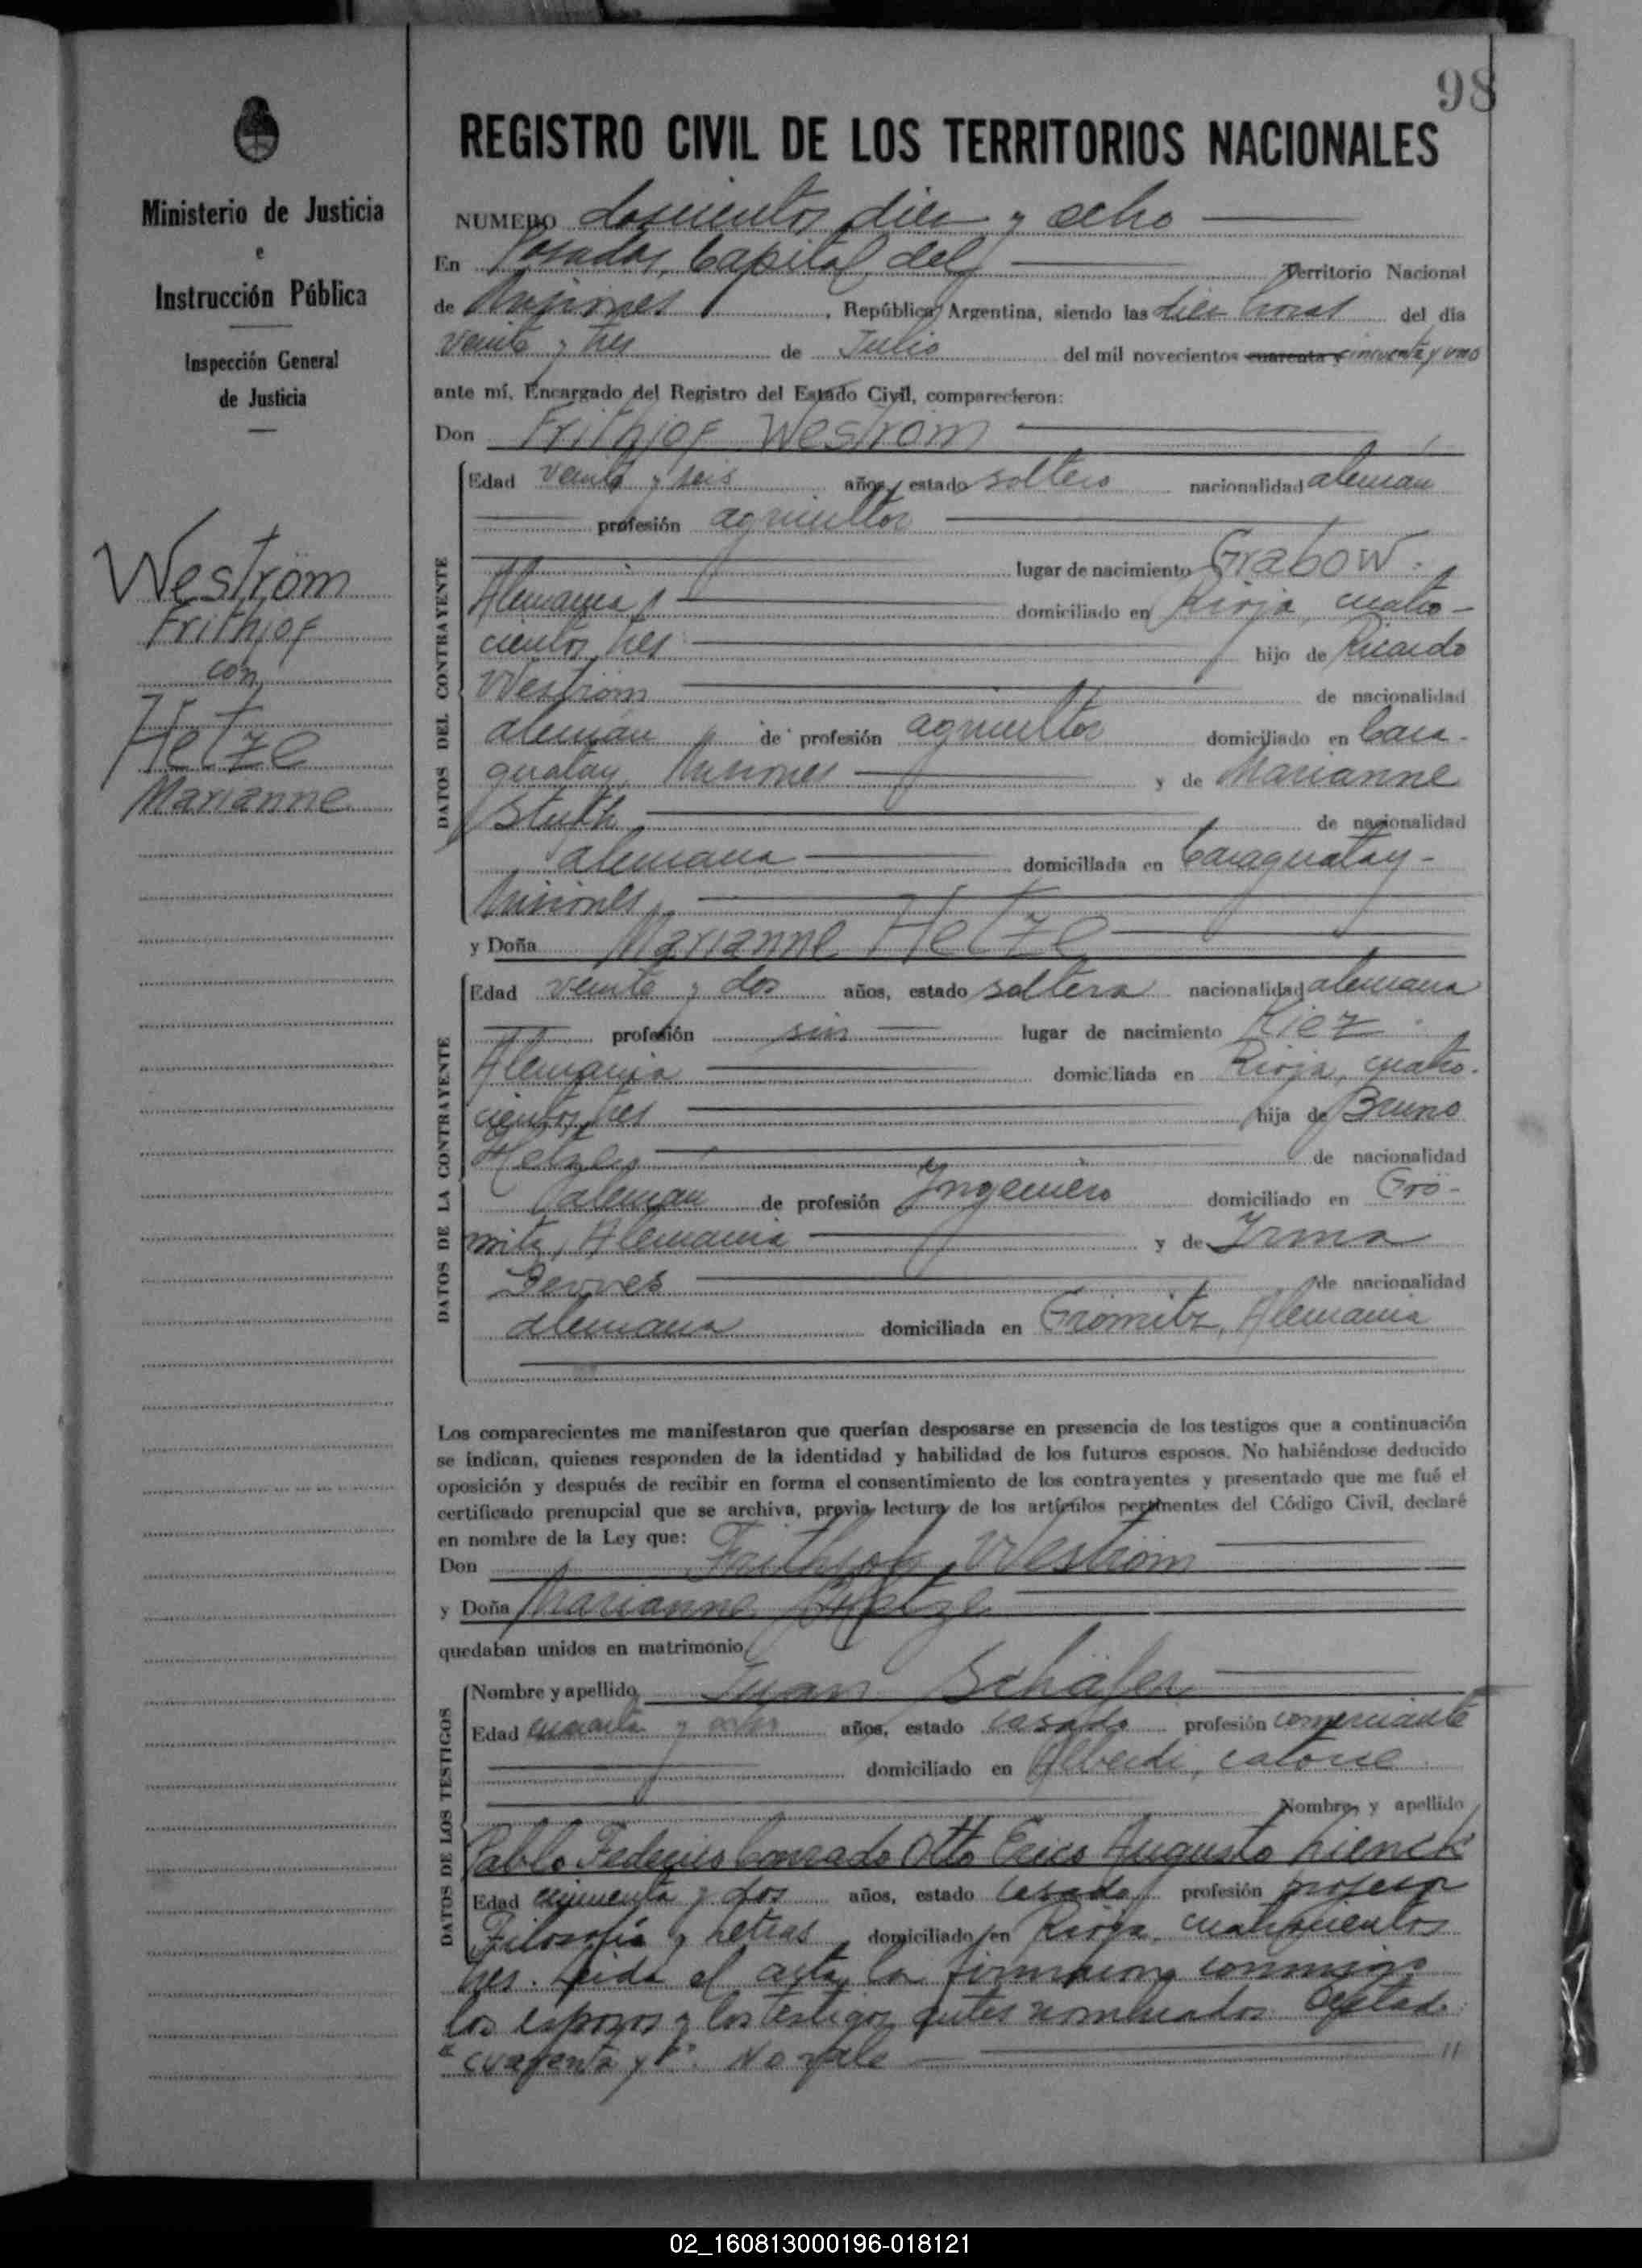 98
REGISTRO CIVIL DE LOS TERRITORIOS NACIONALES
Ministerio de Justicia
e
Instrucción Pública
Inspección General
de Justicia
Weström
Frithjof
con
Hetze
Marianne
NUMERO doscientos diez y ocho
En Posadas, Capital del Territorio Nacional
de Misiones, República Argentina, siendo las diez horas del día
veinte y tres de Julio del mil novecientos cuarenta y cincuenta y uno
ante mí, Encargado del Registro del Estado Civil, comparecieron:
Don Frithjof Weström
DATOS DEL CONTRAYENTE
Edad veinte y seis años, estado soltero nacionalidad alemán
profesión agricultor
lugar de nacimiento Grabow.
Alemania domiciliado en Rioja, cuatro-
cientos tres hijo de Ricardo
Weström de nacionalidad
alemán de profesión agricultor domiciliado en Cara-
guatay, Misiones y de Marianne
Stuth de nacionalidad
alemana domiciliada en Caraguatay-
Misiones
y Doña Marianne Hetze
DATOS DE LA CONTRAYENTE
Edad veinte y dos años, estado soltera nacionalidad alemana
profesión sin lugar de nacimiento Kiez.
Alemania domiciliada en Rioja, cuatro-
cientos tres hija de Bruno
de nacionalidad
alemán de profesión Ingeniero domiciliado en Grö-
mitz, Alemania y de Irma
de nacionalidad
alemana domiciliada en Grömitz, Alemania
Los comparecientes me manifestaron que querían desposarse en presencia de los testigos que a continuación
se indican, quienes responden de la identidad y habilidad de los futuros esposos. No habiéndose deducido
oposición y después de recibir en forma el consentimiento de los contrayentes y presentado que me fué el
certificado prenupcial que se archiva, previa lectura de los artículos pertinentes del Código Civil, declaré
en nombre de la Ley que:
Don Frithjof Weström
y Doña Marianne Hetze
quedaban unidos en matrimonio
DATOS DE LOS TESTIGOS
Nombre y apellido Juan Schäfer
Edad cuarenta y ocho años, estado casado profesión comerciante
domiciliado en Alberdi, catorce.
Nombre y apellido
Pablo Federico Conrado Otto Erico Augusto Lienck
Edad cincuenta y dos años, estado casado profesión profesor
Filosofía y Letras domiciliado en Rioja, cuatrocientos
tres. Leida el acta, la firmaron conmigo
los esposos y los testigos antes nombrados.
"cuarenta y". No vale
02_160813000196-018121